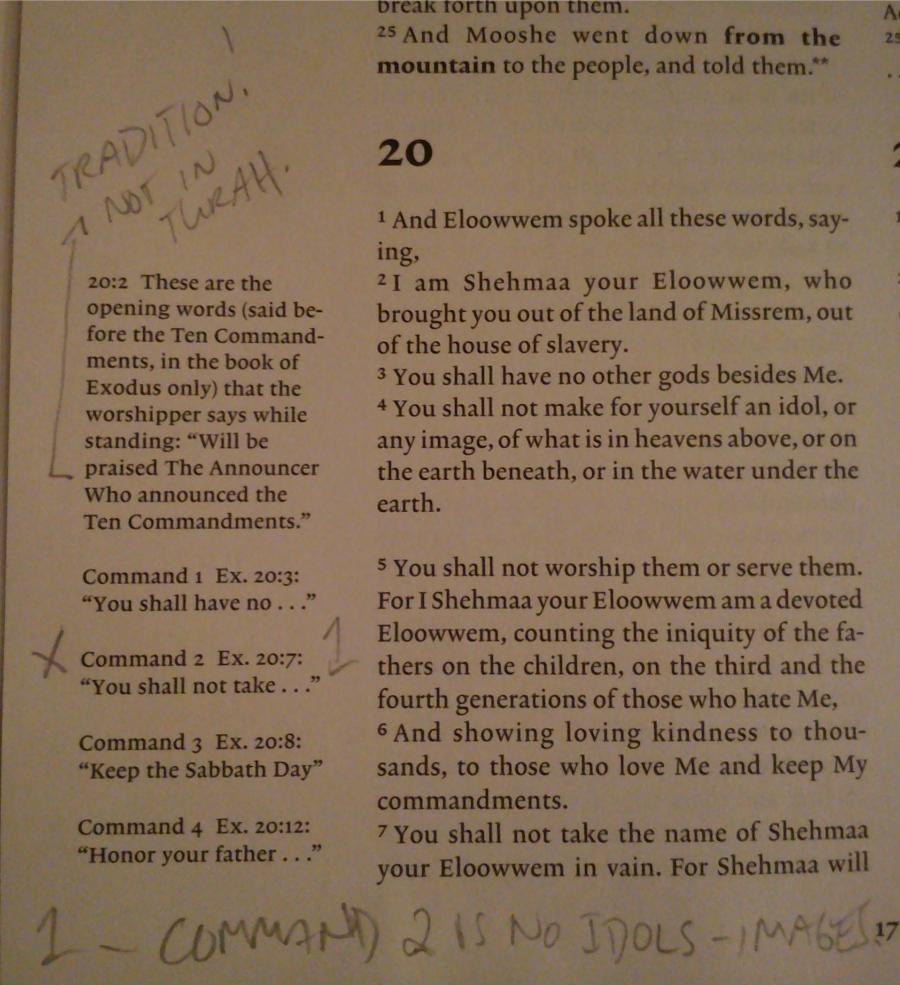 break forth upon them.
25 And Mooshe went down from the
mountain to the people, and told them.**
20
1 And Eloowwem spoke all these words, say-
ing,
2 I am Shehmaa your Eloowwem, who
brought you out of the land of Missrem, out
of the house of slavery.
3 You shall have no other gods besides Me.
4 You shall not make for yourself an idol, or
any image, of what is in heavens above, or on
the earth beneath, or in the water under the
earth.
5 You shall not worship them or serve them.
For I Shehmaa your Eloowwem am a devoted
Eloowwem, counting the iniquity of the fa-
thers on the children, on the third and the
fourth generations of those who hate Me,
6 And showing loving kindness to thou-
sands, to those who love Me and keep My
commandments.
7 You shall not take the name of Shehmaa
your Eloowwem in vain. For Shehmaa will
TRADITION.
NOT IN
TURAH.
20:2 These are the
opening words (said be-
fore the Ten Command-
ments, in the book of
Exodus only) that the
worshipper says while
standing: “Will be
praised The Announcer
Who announced the
Ten Commandments.”
Command 1 Ex. 20:3:
“You shall have no . . .”
1
Command 2 Ex. 20:7:
“You shall not take . . .”
Command 3 Ex. 20:8:
“Keep the Sabbath Day”
Command 4 Ex. 20:12:
“Honor your father . . .”
1 – COMMAND 2 IS NO IDOLS – IMAGES.
17